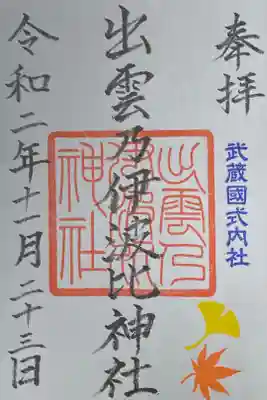 奉拝
武蔵國式内社
出雲乃伊波比神社
出雲乃伊波比神社
令和二年十一月二十三日